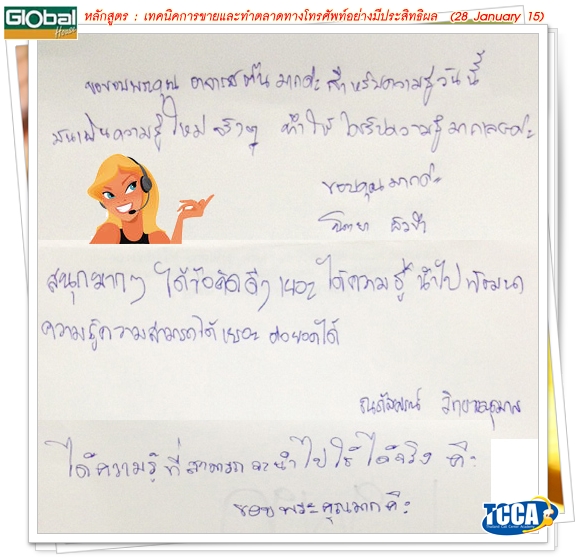 GlObal
House
หลักสูตร : เทคนิคการขายและทำตลาดทางโทรศัพท์อย่างมีประสิทธิผล (28 January 15)
ขอขอบพระคุณ อาจารย์ มากค่ะ สำหรับความรู้วันนี้
มันเป็นความรู้ใหม่ จริงๆ ทำให้ ได้รับความรู้มากเลยค่ะ
ขอบคุณมากค่ะ
สนุกมากๆ ได้ข้อคิดดีๆ เยอะ ได้ความรู้ นำไปพัฒนา
ความรู้ความสามารถได้เยอะ ต่อยอดได้
ได้ความรู้ ที่สามารถจะนำไปใช้ได้จริง ค่ะ
ขอบพระคุณมากค่ะ
TCCA